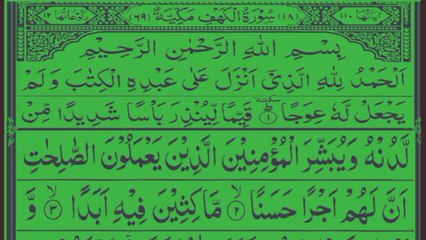 اٰیَاتُهَا ١١٠ (١٨) سُوْرَةُ الْكَهْفِ مَكِّیَّةٌ (٦٩) رُكُوْعَاتُهَا ١٢
بِسْمِ اللّٰهِ الرَّحْمٰنِ الرَّحِیْمِ
اَلْحَمْدُ لِلّٰهِ الَّذِیْۤ اَنْزَلَ عَلٰى عَبْدِهِ الْكِتٰبَ وَ لَمْ
یَجْعَلْ لَّهٗ عِوَجًاؕٚ ١ سكتة قَیِّمًا لِّیُنْذِرَ بَاْسًا شَدِیْدًا مِّنْ
لَّدُنْهُ وَ یُبَشِّرَ الْمُؤْمِنِیْنَ الَّذِیْنَ یَعْمَلُوْنَ الصّٰلِحٰتِ
اَنَّ لَهُمْ اَجْرًا حَسَنًاۙ ٢ مَّاكِثِیْنَ فِیْهِ اَبَدًاۙ ٣ وَّ